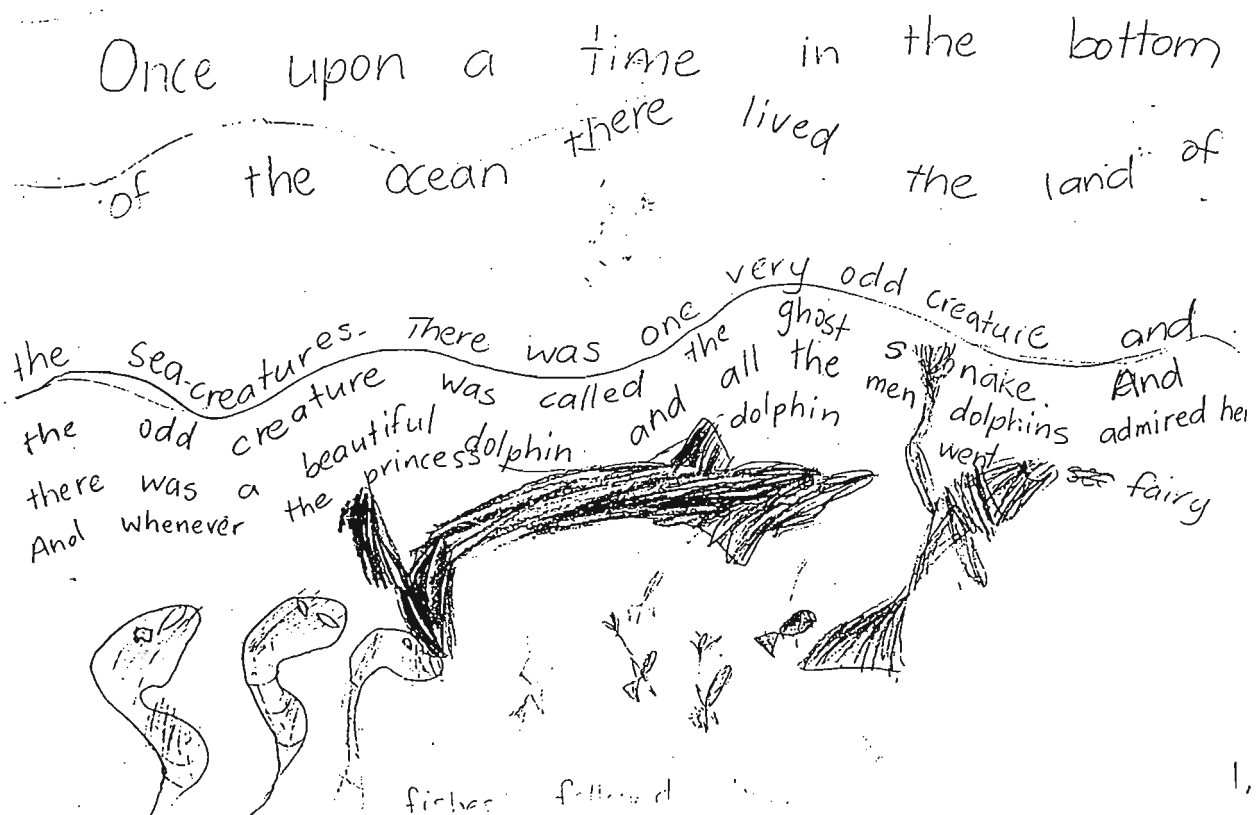 Once upon a time in the bottom
of the ocean there lived the land of
the sea-creatures. There was one very odd creature and
the odd creature was called the ghost snake. And
there was a beautiful dolphin and all the men dolphins admired her
And whenever the princess dolphin went fairy